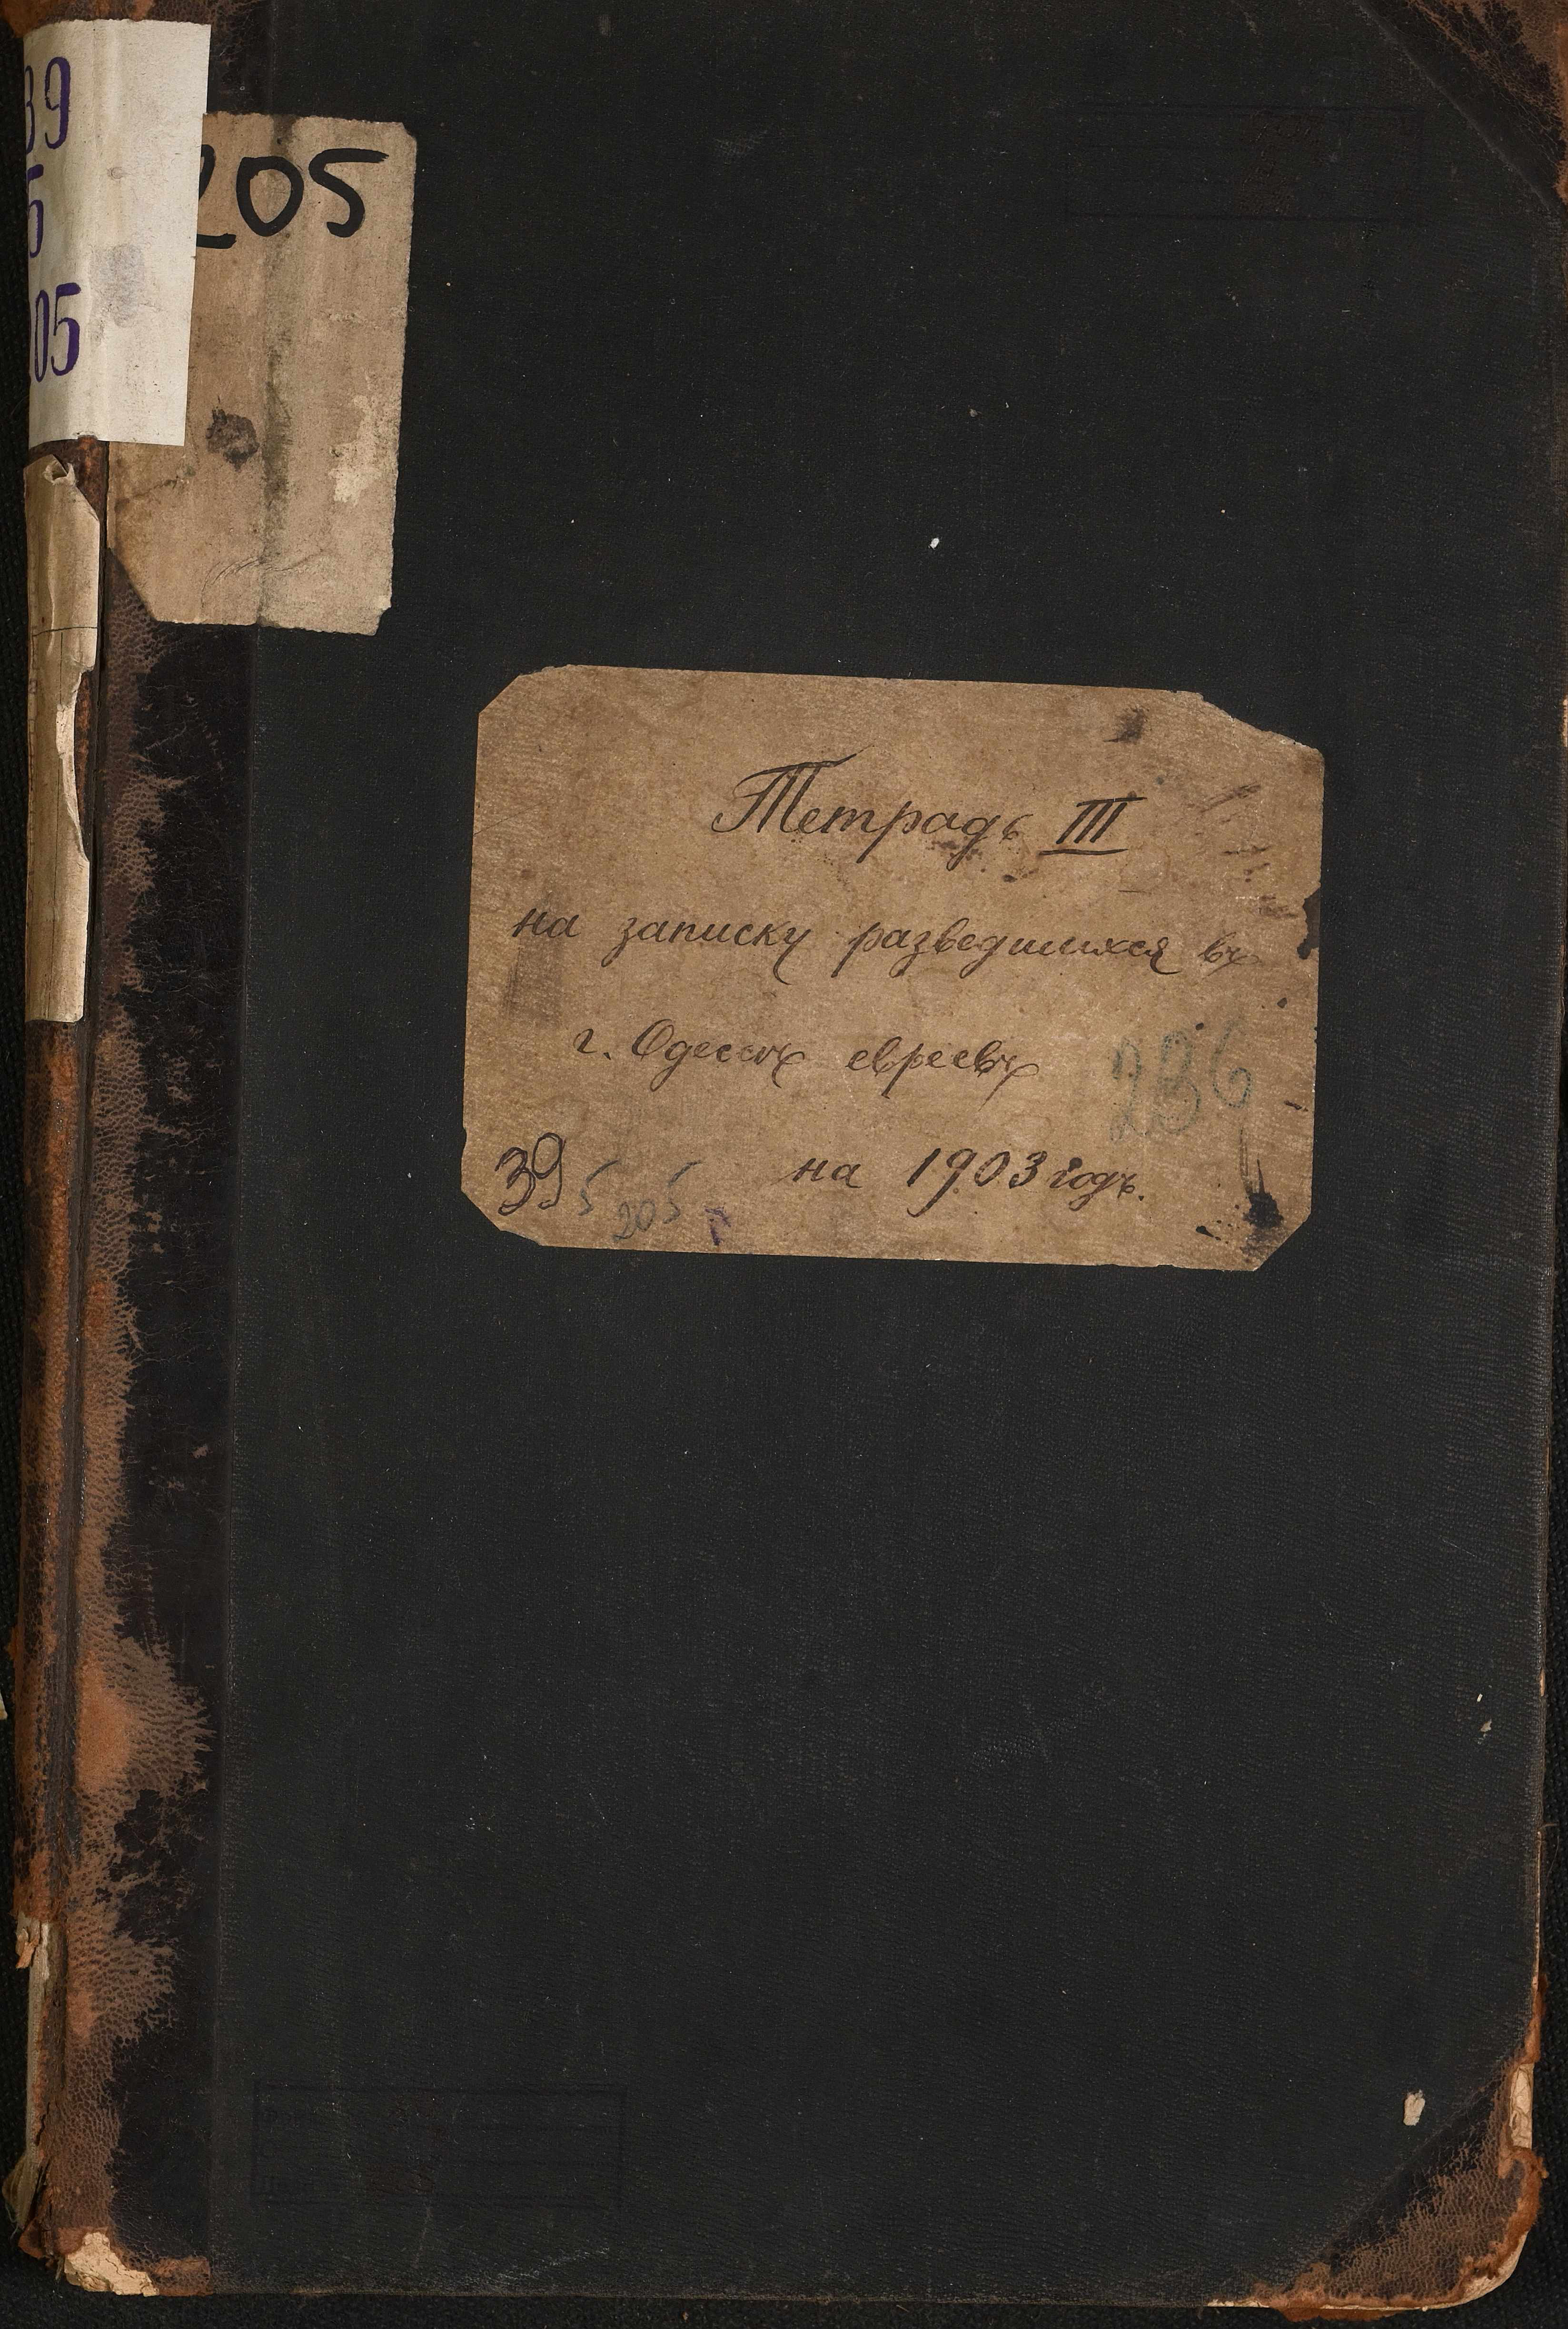 39
5
05
205
Тетрадь III
на записку разведшихся въ
г. Одессѣ евреевъ
236
на 1903 годъ.
39 5 205